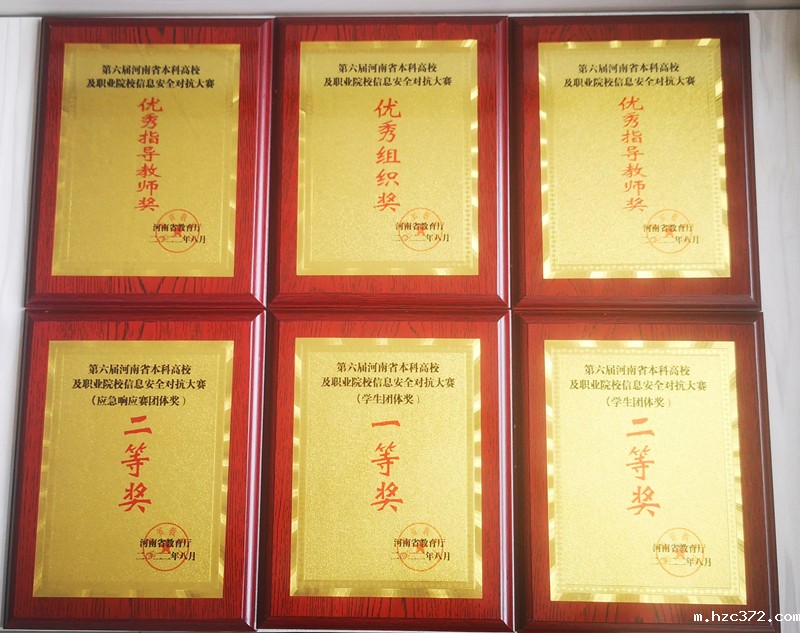 第六届河南省本科高校
及职业院校信息安全对抗大赛
优秀指导教师奖
河南省教育厅
二〇二二年八月
第六届河南省本科高校
及职业院校信息安全对抗大赛
优秀组织奖
河南省教育厅
二〇二二年八月
第六届河南省本科高校
及职业院校信息安全对抗大赛
优秀指导教师奖
河南省教育厅
二〇二二年八月
第六届河南省本科高校
及职业院校信息安全对抗大赛
（应急响应赛团体奖）
二等奖
河南省教育厅
二〇二二年八月
第六届河南省本科高校
及职业院校信息安全对抗大赛
（学生团体奖）
一等奖
河南省教育厅
二〇二二年八月
第六届河南省本科高校
及职业院校信息安全对抗大赛
（学生团体奖）
二等奖
河南省教育厅
二〇二二年八月
m.hzc372.com